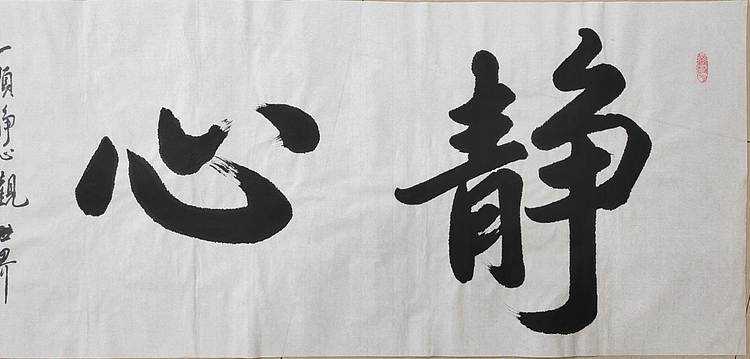 静心
一顆静心觀世界